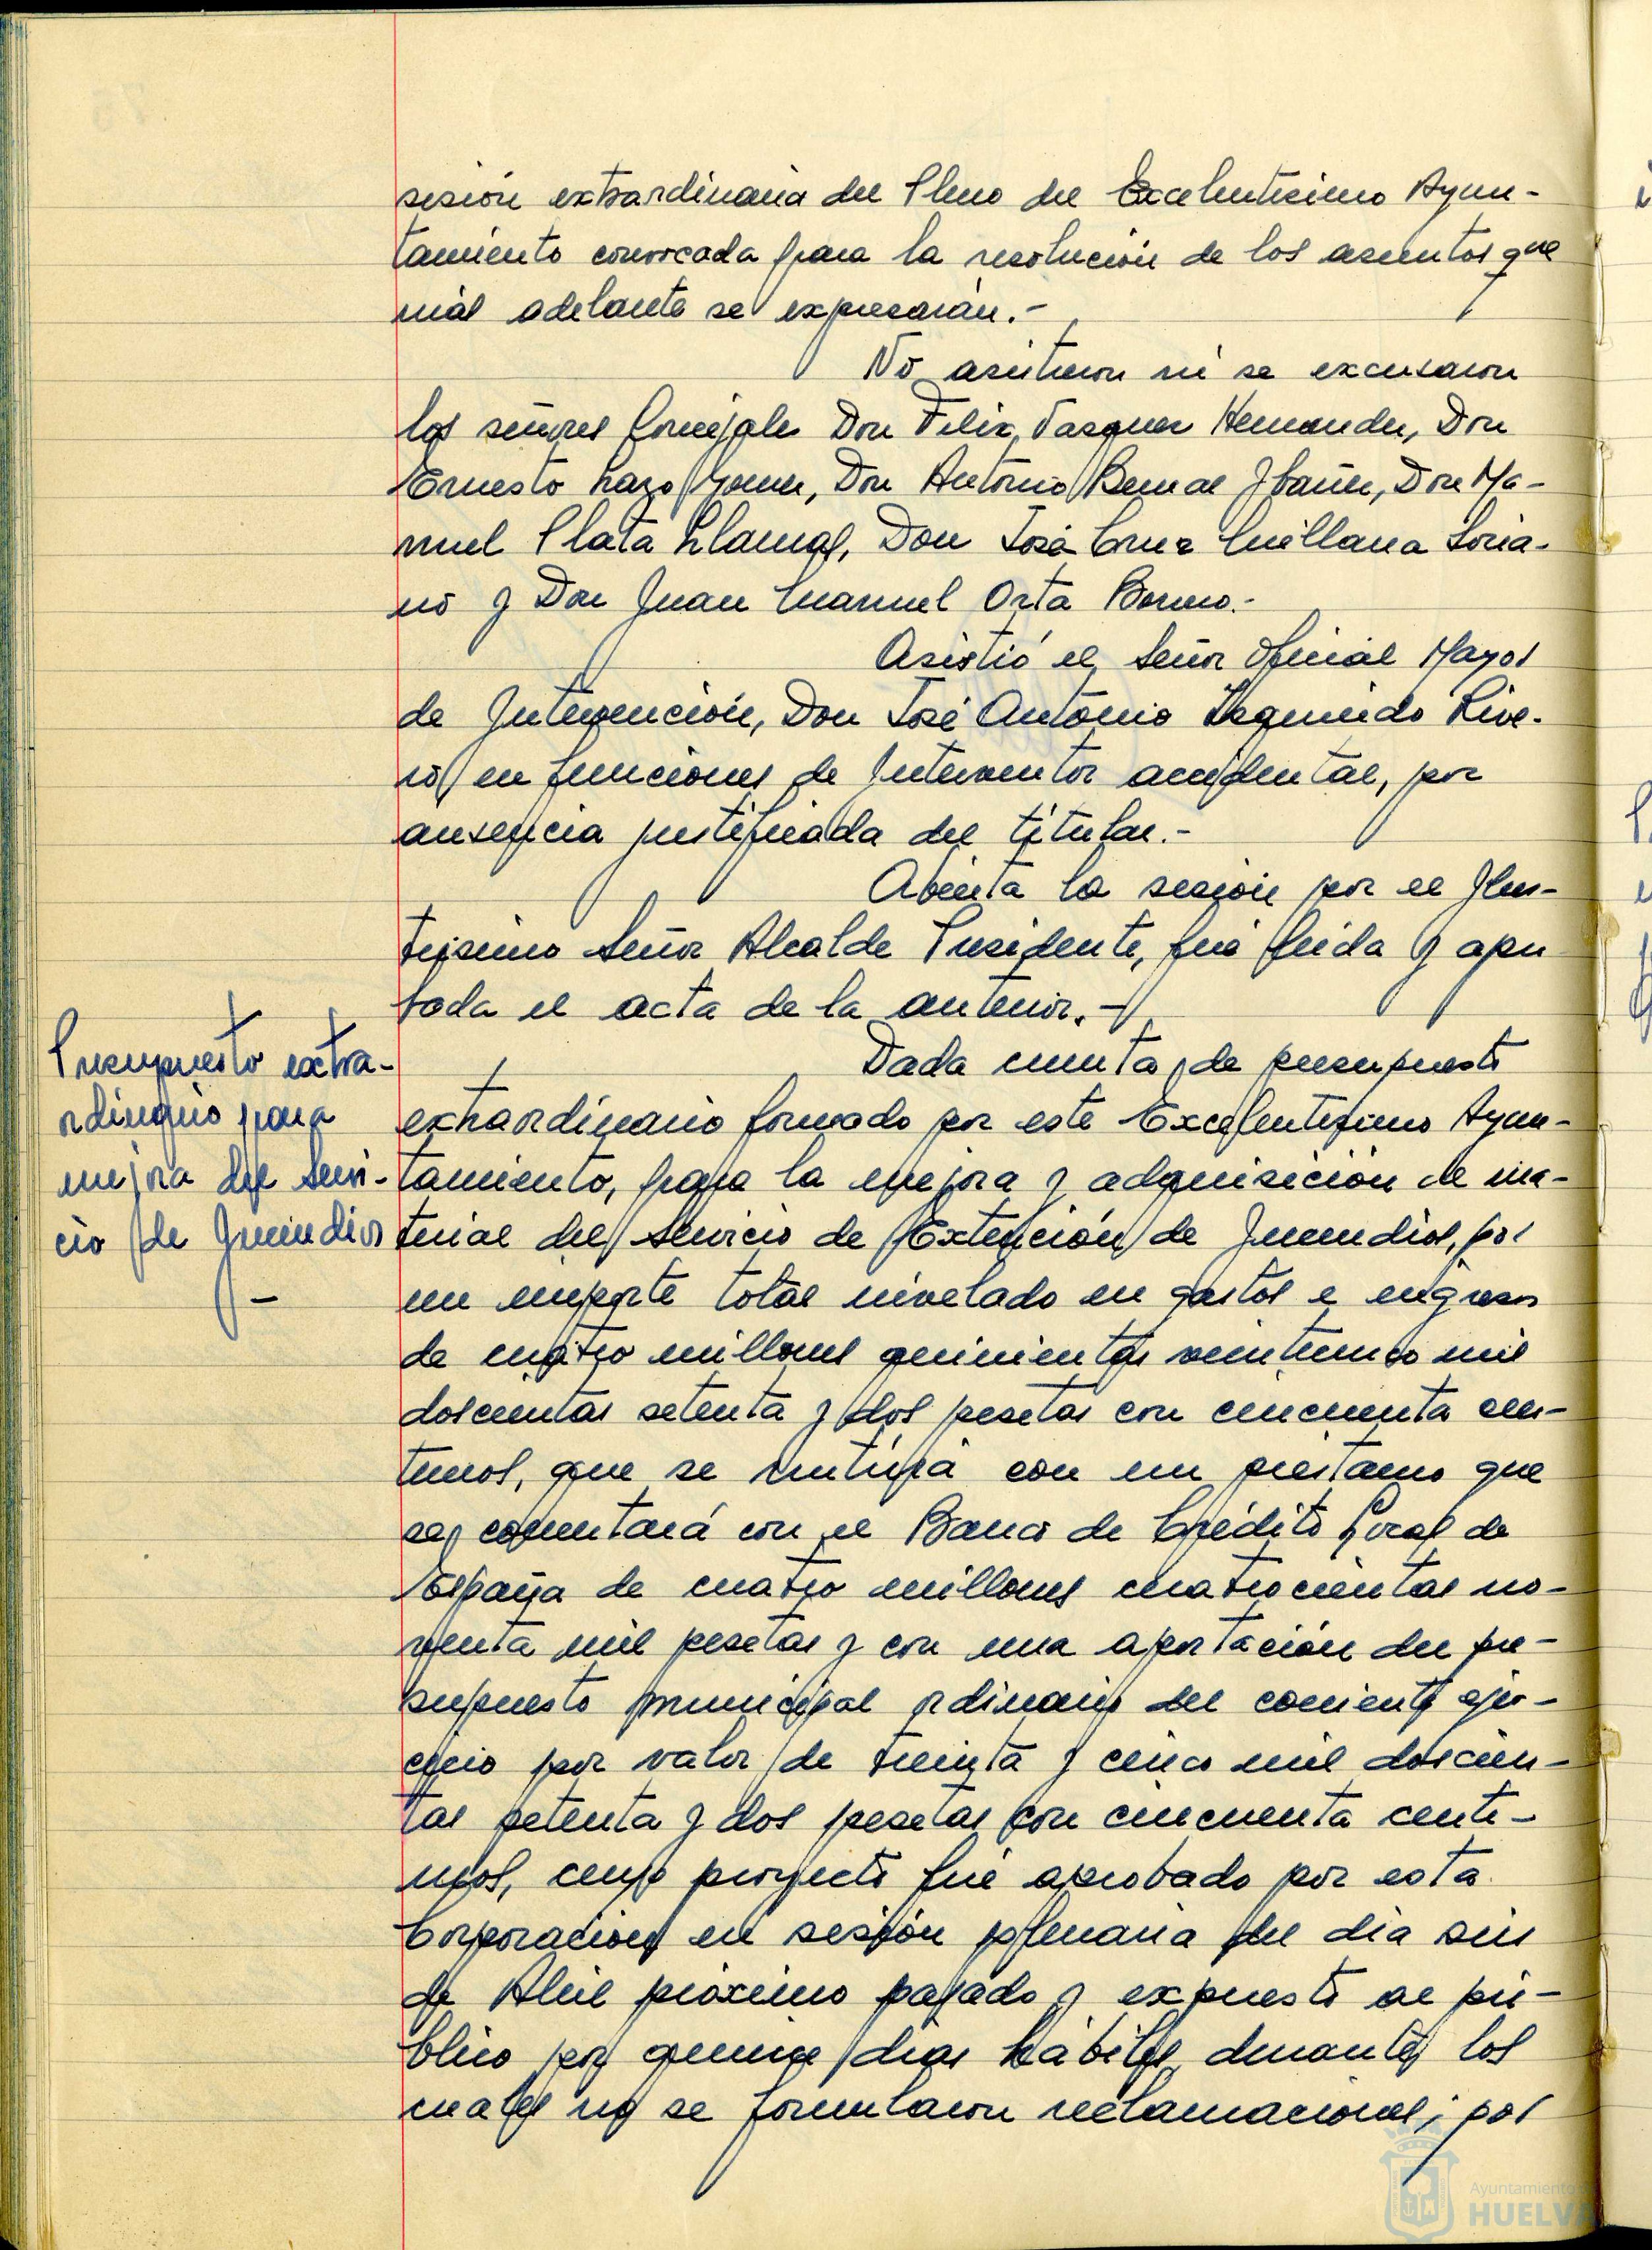 sesión extraordinaria del Pleno del Excelentísimo Ayun-
tamiento convocada para la resolución de los asuntos que
más adelante se expresarán.-
No asistieron ni se excusaron
los señores Concejales Don Felix Vazquez Hernandez, Don
Ernesto Lazo Gomez, Don Antonio Bernal Ibañez, Don Ma-
nuel Plata Llamas, Don José Cruz Quillana Soria-
no y Don Juan Manuel Orta Borrero.-
Asistió el Señor Oficial Mayor
de Intervención, Don José Antonio Izquierdo Rive-
ro en funciones de Interventor accidental, por
ausencia justificada del titular.-
Abierta la sesión por el Ilus-
trísimo Señor Alcalde Presidente, fué leida y apro
bada el acta de la anterior.-
Presupuesto extra-
ordinario para
mejora del Servi-
cio de Incendios
-
Dada cuenta de presupuesto
extraordinario formado por este Excelentísimo Ayun-
tamiento, para la mejora y adquisición de ma-
terial del Servicio de Extinción de Incendios, por
un importe total nivelado en gastos e ingresos
de cuatro millones quinientas veinticinco mil
doscientas setenta y dos pesetas con cincuenta cen-
timos, que se nutrirá con un préstamo que
se concertará con el Banco de Crédito Local de
España de cuatro millones cuatrocientas no-
venta mil pesetas y con una aportación del pre-
supuesto municipal ordinario del corriente ejer-
cicio por valor de treinta y cinco mil doscien-
tas setenta y dos pesetas con cincuenta centi-
mos, cuyo proyecto fué aprobado por esta
Corporación en sesión plenaria del día seis
de Abril próximo pasado y expuesto al pú-
blico por quince días hábiles, durante los
cuales no se formularon reclamaciones; por
Ayuntamiento
HUELVA